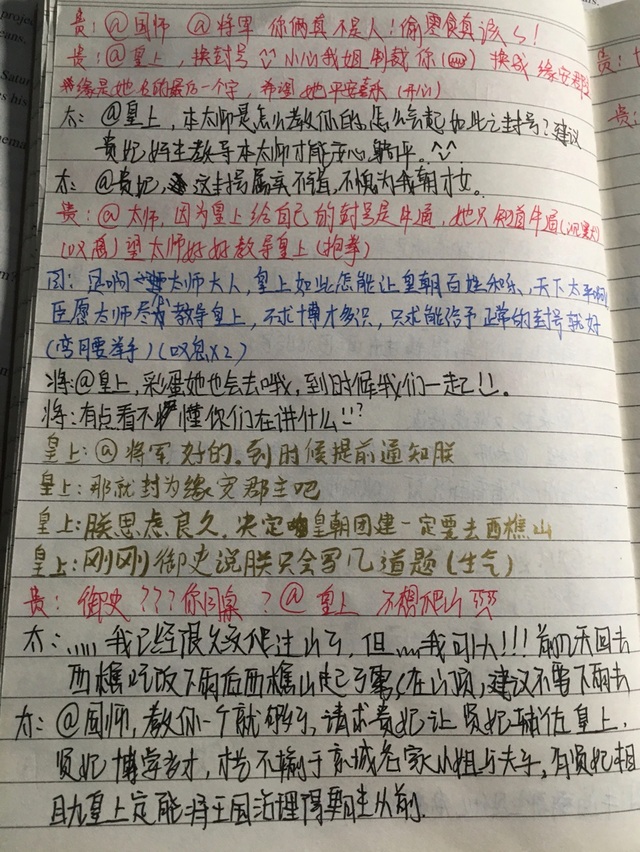 贵:@国师 @将军 你俩真不是人!偷零食真该 !
贵:@皇上,换封号 小心我姐制裁你 换成 缘安郡主
缘是她名的最后一个字,希望她平安喜乐(开心)
太:@皇上,本太师是怎么教你的,怎么会起如此之封号?建议
贵妃好生教导本太师才能安心躺平。^^
太:@贵妃,这封号属实不错,不愧为我朝才女。
贵:@太师,因为皇上给自己的封号是牛通,她只知道牛通
(叹息)望太师好好教导皇上(抱拳)
国:是啊 太师大人,皇上如此怎能让皇朝百姓和乐、天下太平
臣愿太师尽力教导皇上,不求博才多识,只求能给予正常的封号就好
(弯腰举手)(叹息x2)
将:@皇上,彩蛋她也会去哦,到时候我们一起!!。
将:有点看不 懂你们在讲什么!!?
皇上:@将军 好的。到时候提前通知朕
皇上:那就封为缘安郡主吧
皇上:朕思虑良久,决定皇朝团建一定要去西樵山
皇上:刚刚御史说朕只会写几道题(生气)
贵:御史???你同桌?@皇上 不想爬山
太:,,,,,我已经很久没爬过山了,但,,,,我可以!!!前几天回去
西樵吃饭下雨后西樵山起了雾(在山顶,建议不要下雨去
太:@国师,教你一个就够了,请求贵妃让贤妃辅佐皇上,
贤妃博学多才,才艺不输于京城名家小姐与夫子,有贤妃相
助皇上定能将王国治理得朝生从前.